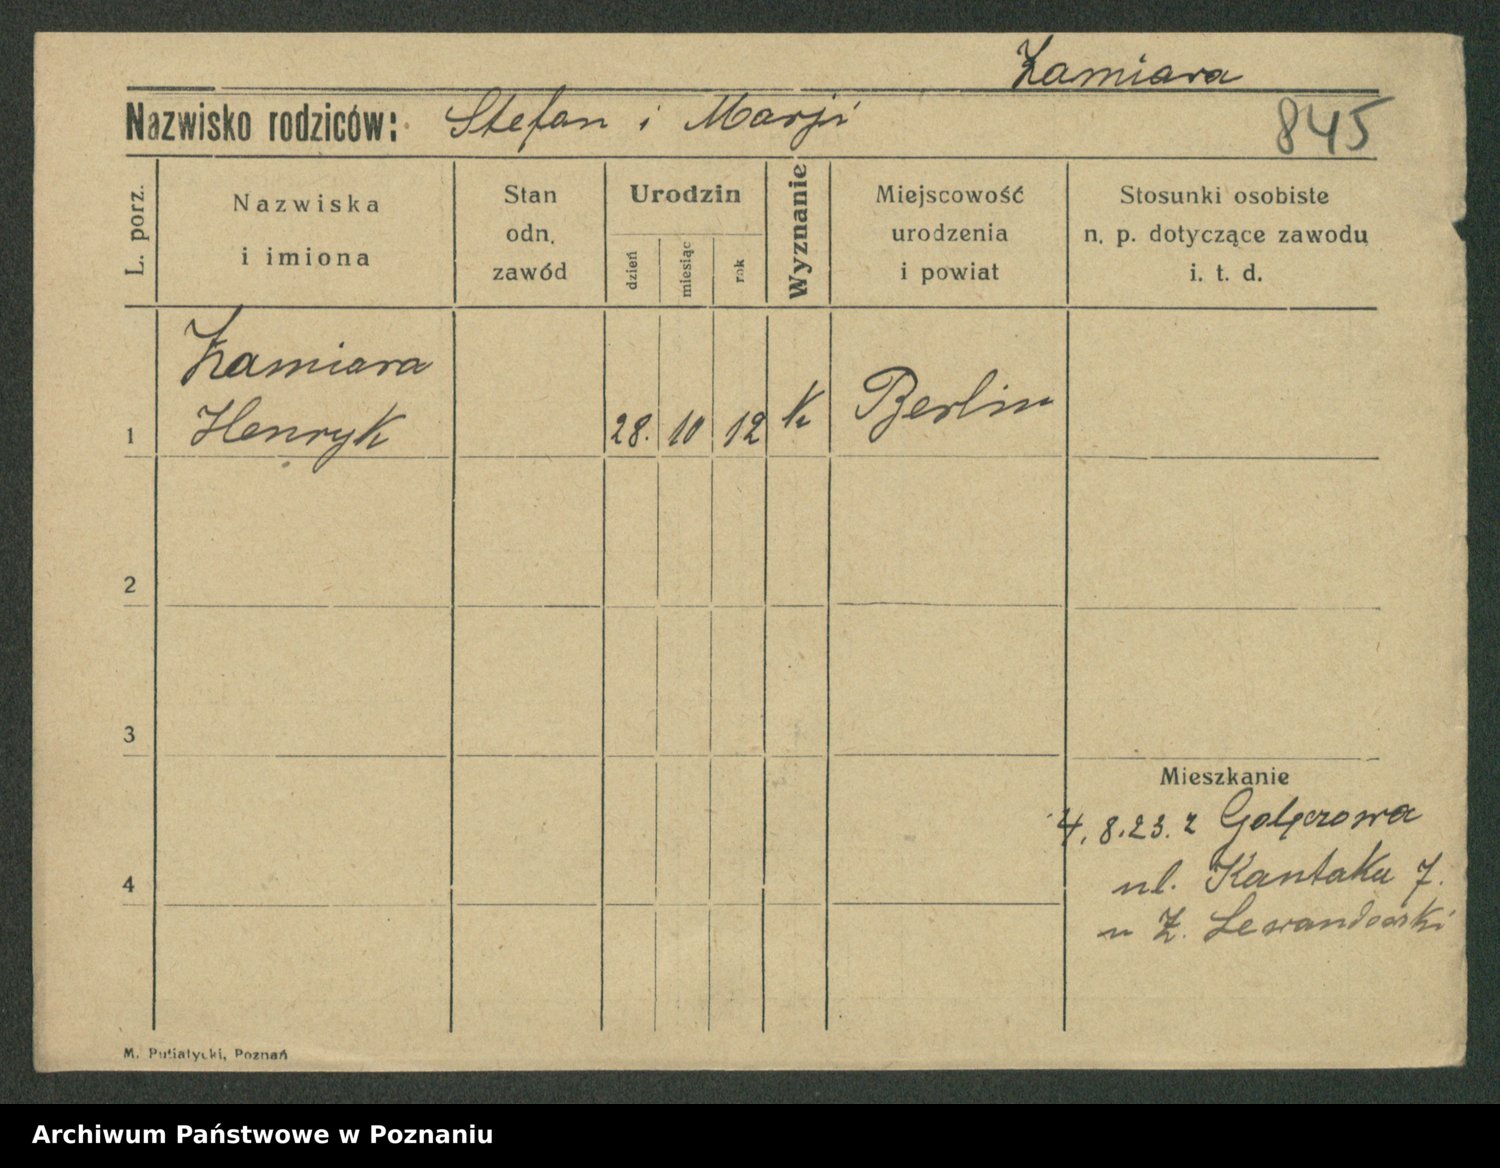 Kamiara
Nazwisko rodziców: Stefan i Marji
845
L. porz.
Nazwiska
i imiona
Stan
odn.
zawód
Urodzin
dzień
miesiąc
rok
Wyznanie
Miejscowość
urodzenia
i powiat
Stosunki osobiste
n. p. dotyczące zawodu
i. t. d.
Kamiara
1 Henryk 28. 10 12 k Berlin
2
3
Mieszkanie
4.8.23. z
4
ul. Kantaka 7.
u Z. Lewandowski
M. Putiatycki, Poznań
Archiwum Państwowe w Poznaniu